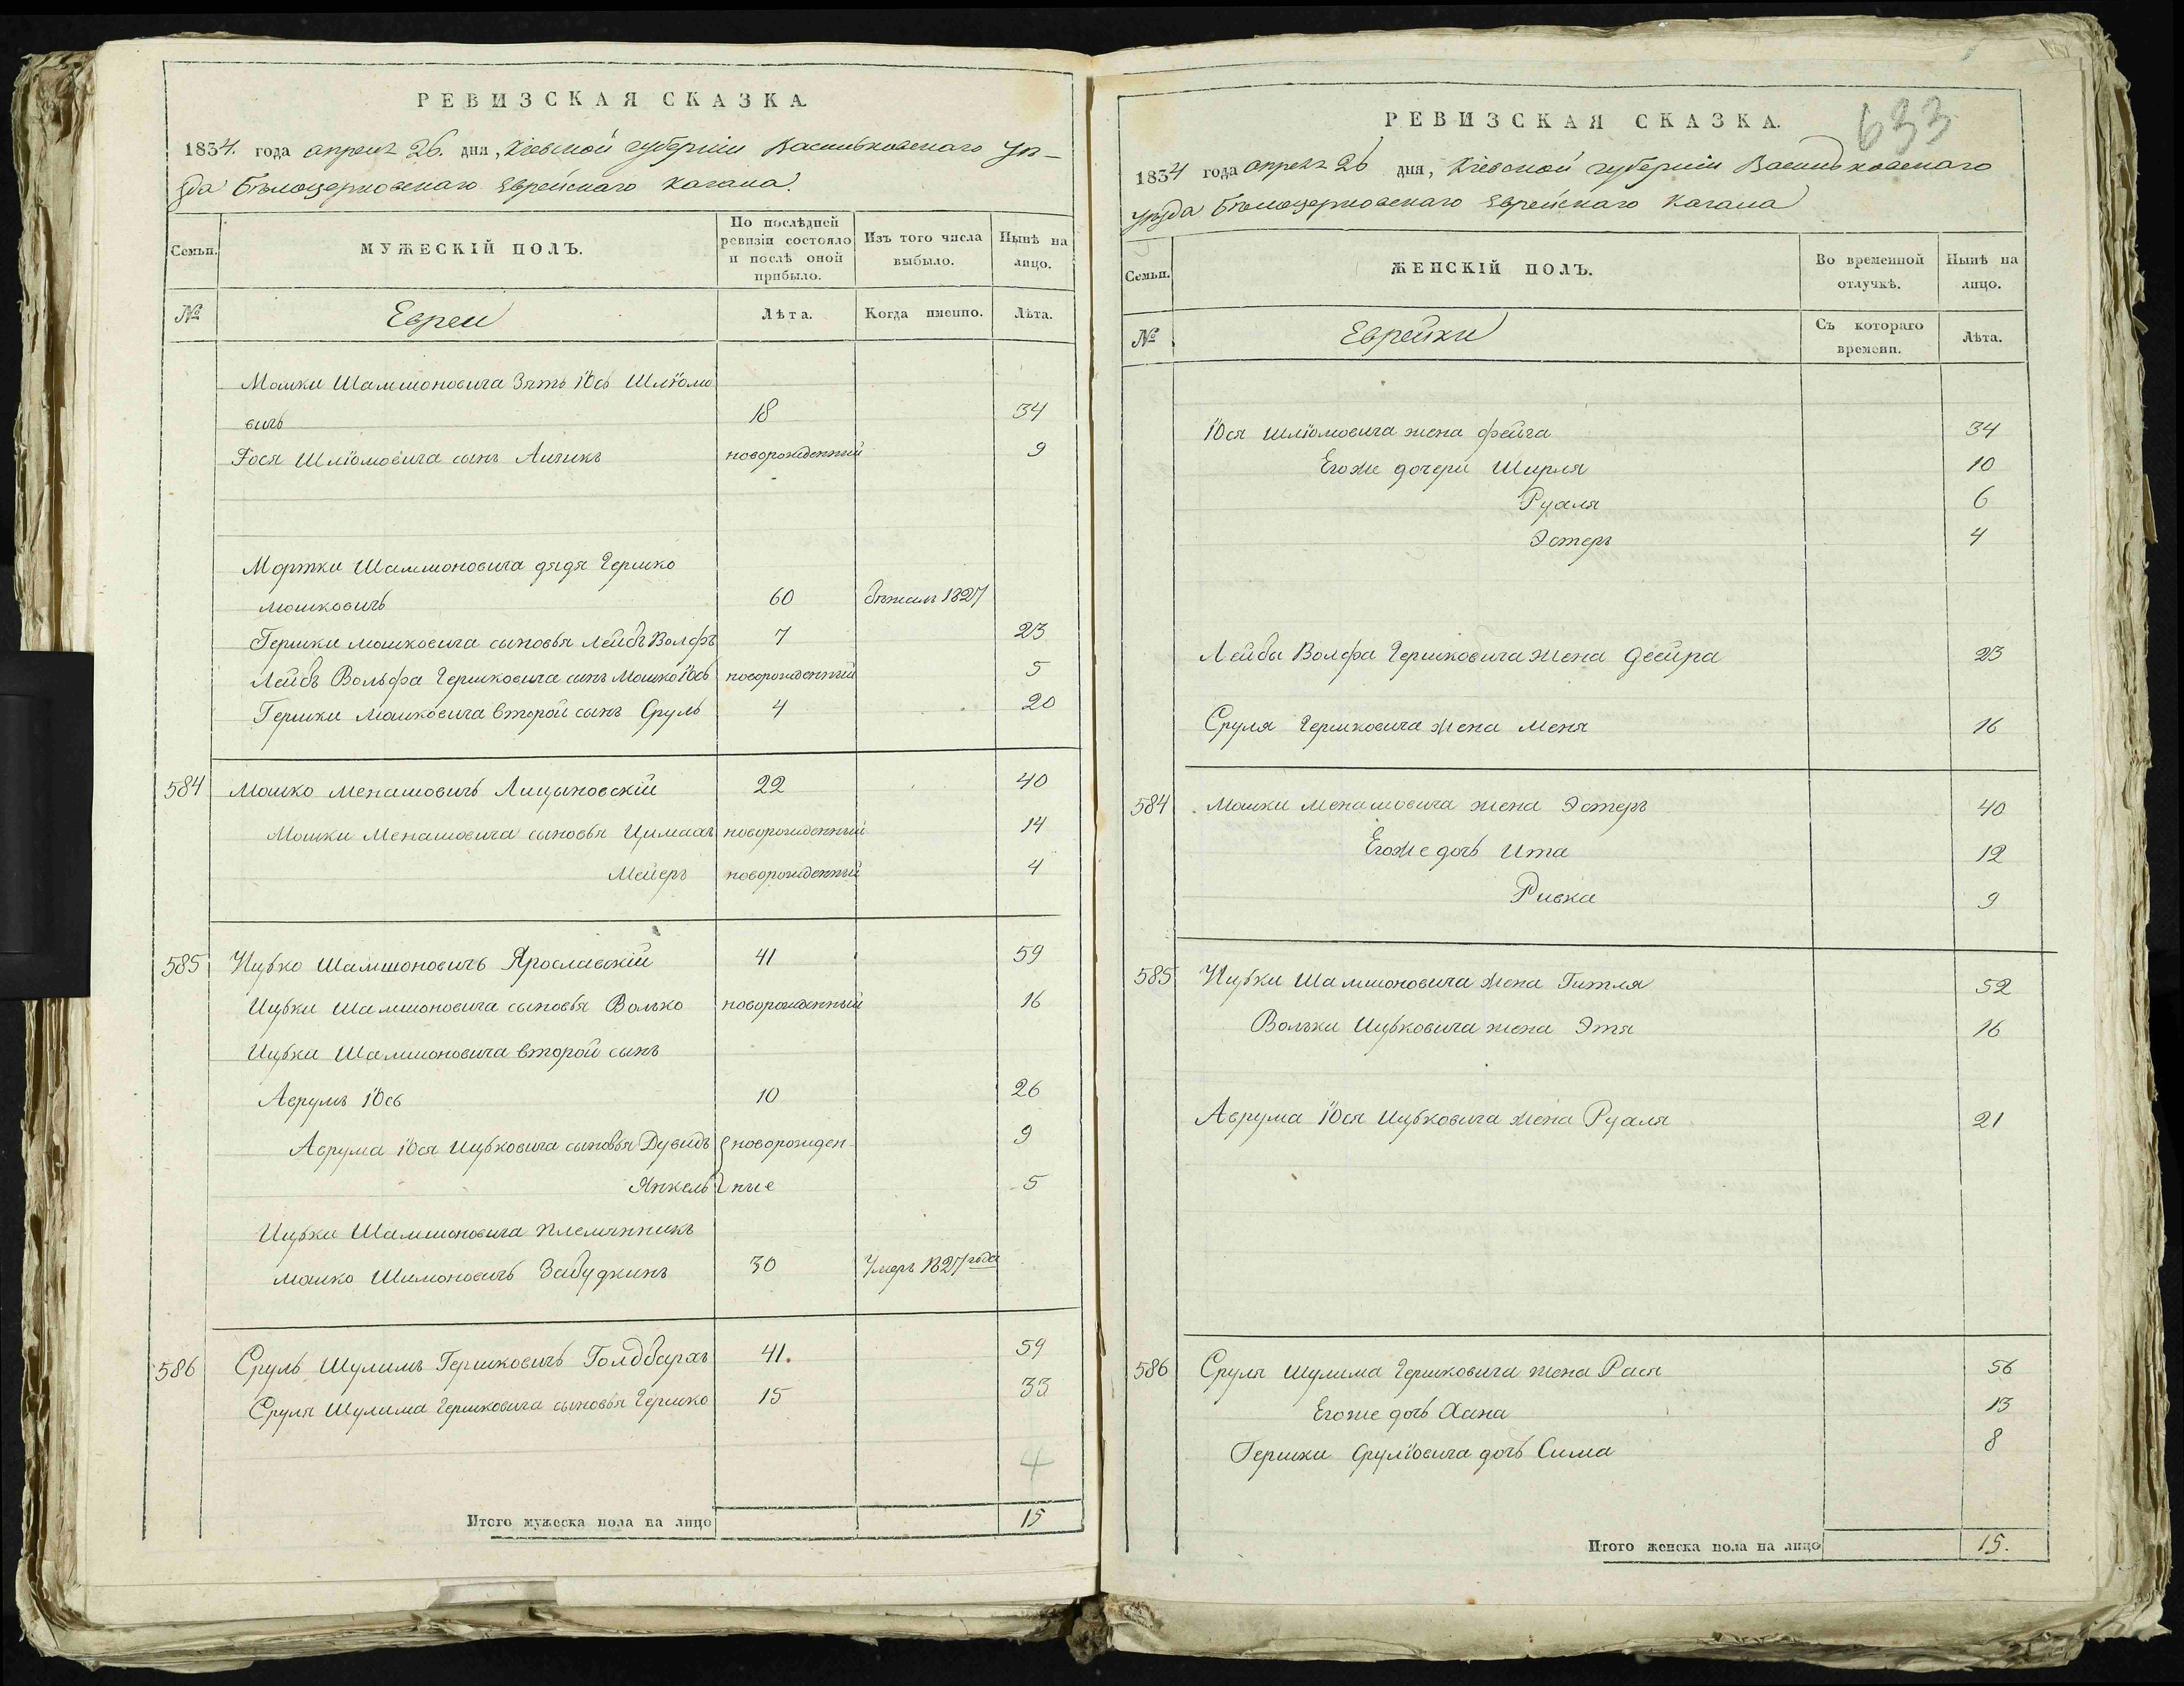 РЕВИЗСКАЯ СКАЗКА.
1834. года апреля 26. дня, Кіевской губерніи Васильковскаго уѣ-
зда Бѣлоцерковскаго Еврейскаго Кагала.
Семьи.
МУЖЕСКІЙ ПОЛЪ.
По послѣдней ревизіи состояло и послѣ оной прибыло.
Изъ того числа выбыло.
Нынѣ на лицо.
№
Евреи
Лѣта.
Когда именно.
Лѣта.
Мошки Шамшоновича Зять Іось Шліомо
вичъ 18 34
Іося Шліомовича сынъ Аизикъ новорожденный 9
Мортки Шамшоновича дядя Гершко
Мошковичъ 60 бѣжалъ 1827
Гершки Мошковича сыновья Лейбъ Волфъ 7 23
Лейбъ Вольфа Гершковича сынъ Мошко Іось новорожденный 5
Гершки Мошковича второй сынъ Сруль 4 20
584 Мошко Менашовичъ Лицыновскій 22 40
Мошки Менашовича сыновья новорожденный 14
Мейеръ новорожденный 4
585 Ицько Шамшоновичъ Ярославскій 41 59
Ицьки Шамшоновича сыновья Волько новорожденный 16
Ицьки Шамшоновича второй сынъ
Аврумъ Іось 10 26
Аврума Іося Ицьковича сыновья Дувидъ новорожден- 9
Янкель ные 5
Ицьки Шамшоновича племянникъ
Мошко Шимоновичъ Забудкинъ 30 Умеръ 1827 года
586 Сруль Шулимъ Гершковичъ Голдбархъ 41. 59
Сруля Шулима Гершковича сыновья Гершко 15 33
4
Итого мужеска пола на лицо 15
633
РЕВИЗСКАЯ СКАЗКА.
1834 года апреля 26 дня, Кіевской губерніи Васильковскаго
уѣзда Бѣлоцерковскаго Еврейскаго Кагала
Семьи.
ЖЕНСКІЙ ПОЛЪ.
Во временной отлучкѣ.
Нынѣ на лицо.
№
Еврейки
Съ котораго времени.
Лѣта.
Іося Шліомовича жена Фейга 34
Егоже дочери Ширля 10
Рухля 6
Эстеръ 4
Лейбы Волфа Гершковича жена Двейра 23
Сруля Гершковича жена Меня 16
584 Мошки Менашовича жена Эстеръ 40
Егоже дочь Ита 12
Ривка 9
585 Ицьки Шамшоновича жена Гитля 52
Вольки Ицьковича жена Этя 16
Аврума Іося Ицьковича жена Рухля 21
586 Сруля Шулима Гершковича жена Рася 56
Егоже дочь Хана 13
Гершки Cруліовича дочь Сима 8
Итого женска пола на лицо 15.